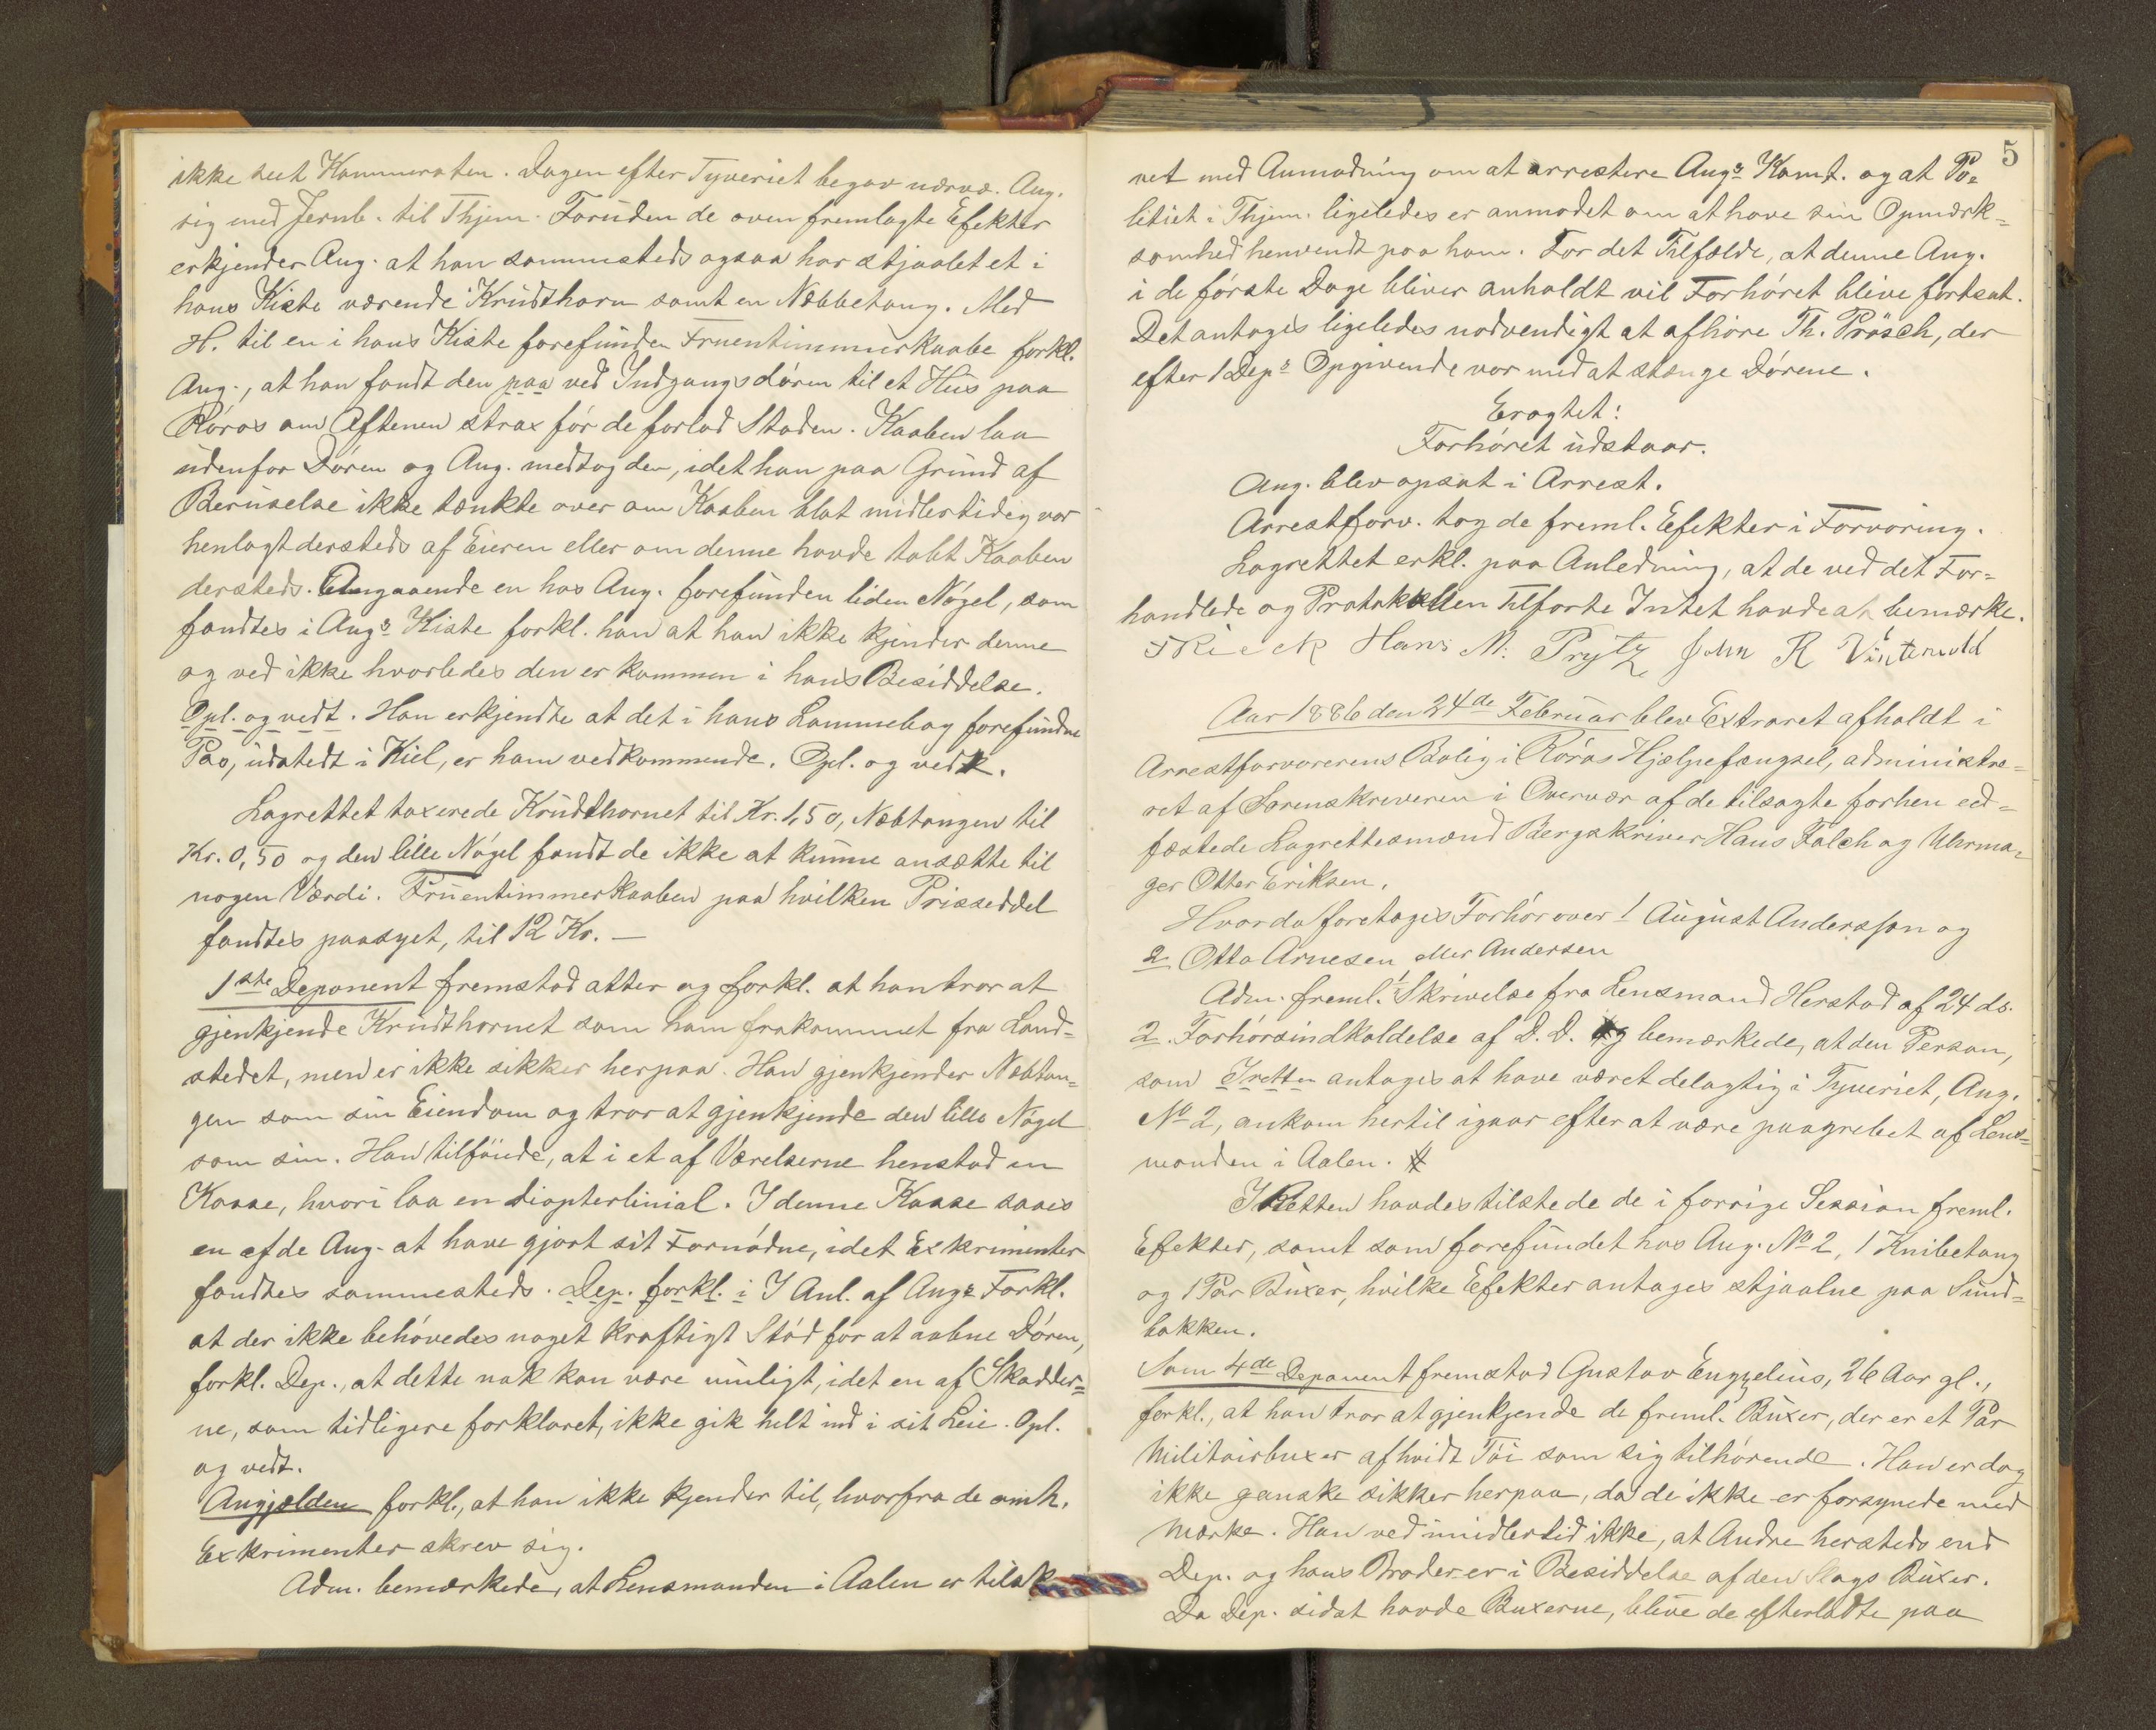 ikke seet Kammeraten. Dagen efter Tyveriet begav nærvæ. Ang.
sig med Jernb. til Thjem. Foruden de oven fremlagte Efekter
erkjender Ang. at han sammesteds ogsaa har stjaalet et i
hans Kiste værende Krudthorn samt en Næbbetang. Med
H. til en i hans Kiste forefunden Fruentimmerkaabe forkl.
Ang., at han fandt den paa ved Indgangsdören til et Hus paa
Röros om Aftenen strax för de forlod Staden. Kaaben laa
udenfor Dören og Ang. medtog den, idet han paa Grund af
Beruselse ikke tænkte over om Kaaben blot midlertidig var
henlagt dersteds af Eieren eller om denne havde tabt Kaaben
dersteds. Angaaende en hos Ang. forefunden liden Nögel, som
fandtes i Angs Kiste forkl. han at han ikke kjender denne
og ved ikke hvorledes den er kommen i hans Besiddelse.
Opl. og vedt. Han erkjendte at det i hans Lommebog forefundne
Pas, udstedt i Kiel, er ham vedkommende. Opl. og vedt.
Lagrettet taxerede Krudthornet til Kr. 1,50, Næbtangen til
Kr. 0,50 og den lille Nögel fandt de ikke at kunne ansætte til
nogen Værdi. Fruentimmerkaaben paa hvilken Prisseddel
fandtes paasyet, til 12 Kr. —
1ste Deponent fremstod atter og forkl. at han tror at
gjenkjende Krudthornet som ham frakommet fra Land-
stedet, men er ikke sikker herpaa. Han gjenkjender Næbtan-
gen som sin Eiendom og tror at gjenkjende den lille Nögel
som sin. Han tilföiede, at i et af Værelserne henstod en
Kasse, hvori laa en Diopterlinial. I denne Kasse saaes
en af de Ang. at have gjort sit Fornödne, idet Exkrimenter
fandtes sammesteds. Dep. forkl. i I Anl. af Angs Forkl.
at der ikke behövedes noget kraftigt Stöd for at aabne Dören,
forkl. Dep., at dette nok kan være muligt, idet en af Skodder-
ne, som tidligere forklaret, ikke gik helt ind i sit Leie. Opl.
og vedt.
Angjælden forkl., at han ikke kjender til, hvorfra de omh.
Exkrimenter skrev sig.
Adm. bemærkede, at Lensmanden i Aalen er tilsk
5
vet med Anmodning om at arrestere Angs Kamt. og at Po-
litiet i Thjem. ligeledes er anmodet om at have sin Opmærk-
somhed henvendt paa ham. For det Tilfælde, at denne Ang.
i de förste Dage bliver anholdt vil Forhöret blive fortsat.
Det antages ligeledes nødvendigt at afhöre Th. Prösch, der
efter 1 Deps Opgivende var med at stænge Dörene.
Eragtet:
Forhöret udstaar.
Ang. blev opsat i Arrest.
Arrestforv. tog de freml. Efekter i Forvaring.
Lagrettet erkl. paa Anledning, at de ved det For-
handlede og Protokollen Tilforte Intet havde at bemærke.
Hans M. Prytz John R Vintervold
Aar 1886 den 24de Februar blev Extraret afholdt i
Arrestforvarerens Bolig i Röros Hjælpefængsel, administre-
ret af Sorenskriveren i Overvær af de tilsagte forhen eed-
fæstede Lagrettesmænd Bergskriver Hans Falch og Uhrma-
ger Otter Eriksen.
Hvorda foretages Forhör over 1 August Andersson og
2 Otto Arnesen eller Andersen
Adm. freml. 1 Skrivelse fra Lensmand Herstad af 24 ds.
2 Forhörsindkaldelse af D. D. og bemærkede, at den Person,
som Iretten antages at have været delagtig i Tyveriet, Ang.
No 2, ankom hertil igaar efter at være paagrebet af Lens-
manden i Aalen.
I Retten havdes tilstede de i forrige Session freml.
Efekter, samt som forefundet hos Ang. No 2, 1 Knibetang
og 1 Par Buxer, hvilke Efekter antages stjaalne paa Sund-
bakken.
Som 4de Deponent fremstod Gustav Engzelius, 26 Aar gl.,
forkl., at han tror at gjenkjende de freml. Buxer, der er et Par
Militairbuxer af hvidt Töi som sig tilhörende. Han er dog
ikke ganske sikker herpaa, da de ikke er forsynede med
Mærke. Han ved imidlertid ikke, at Andre hersteds end
Dep. og hans Broder er i Besiddelse af den Slags Buxer.
Da Dep. sidst havde Buxerne, bleve de efterladte paa